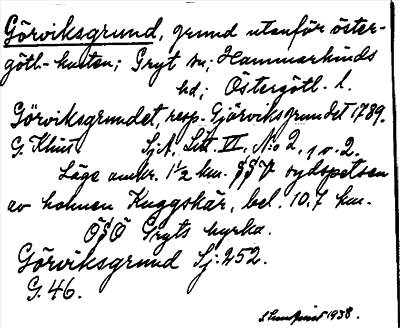 Görviksgrund, grund utanför öster-
götl-kusten; Gryt sn; Hammarkinds
hd; Östergötl. l.
Görviksgrundet resp. Gjörviksgrundet 1789.
G. Klint Sj.A. Litt. VI. N:o 2, 1 o. 2.
Läge omkr. 1 1/2 km. SSV sydspetsen
av holmen Kuggskär, bel. 10,7 km.
ÖSÖ Gryts kyrka.
Görviksgrund Sj: 252.
G. 46.
1938.